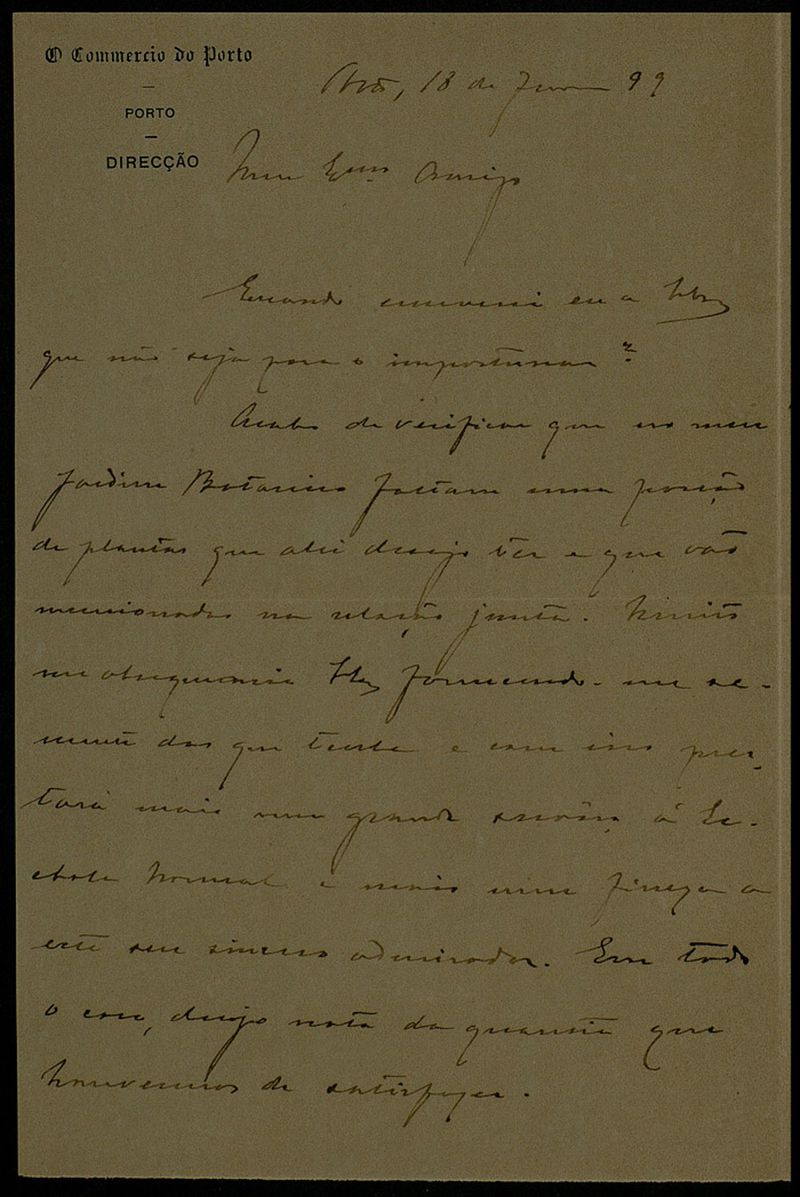 O Commercio do Porto
PORTO
DIRECÇÃO
Porto, 18 de 99
Meu Exmo Amigo
Quando escreverei eu a
que não seja para o importunar?
Acabo de verificar que no meu
Jardim Botanico faltam uma porção
de plantas que ali desejo ter e que vão
mencionadas na relação junta. Muito
me obsequiaria fornecendo-me se-
mente das que tenha e com isso pres-
tará mais um grande serviço á Es-
chola Normal e mais uma fineza a
este seu sincero admirador. Em todo
o caso, desejo nota da quantia que
houvermos de satisfazer.